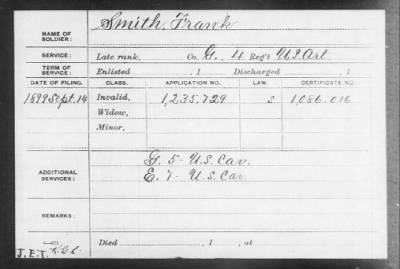 NAME OF SOLDIER: Smith, Frank
SERVICE: Late rank, Co. G., 4 Reg't U.S. Art.
TERM OF SERVICE: Enlisted , 1 Discharged , 1
DATE OF FILING. CLASS. APPLICATION NO. LAW. CERTIFICATE NO.
1899 Sept. 14 Invalid, 1,235.729 S 1,086.016
Widow,
Minor,
ADDITIONAL SERVICES: G. 5 - U.S. Cav.
E. 7 - U.S. Cav.
REMARKS:
Died , 1 , at
J.E.T.